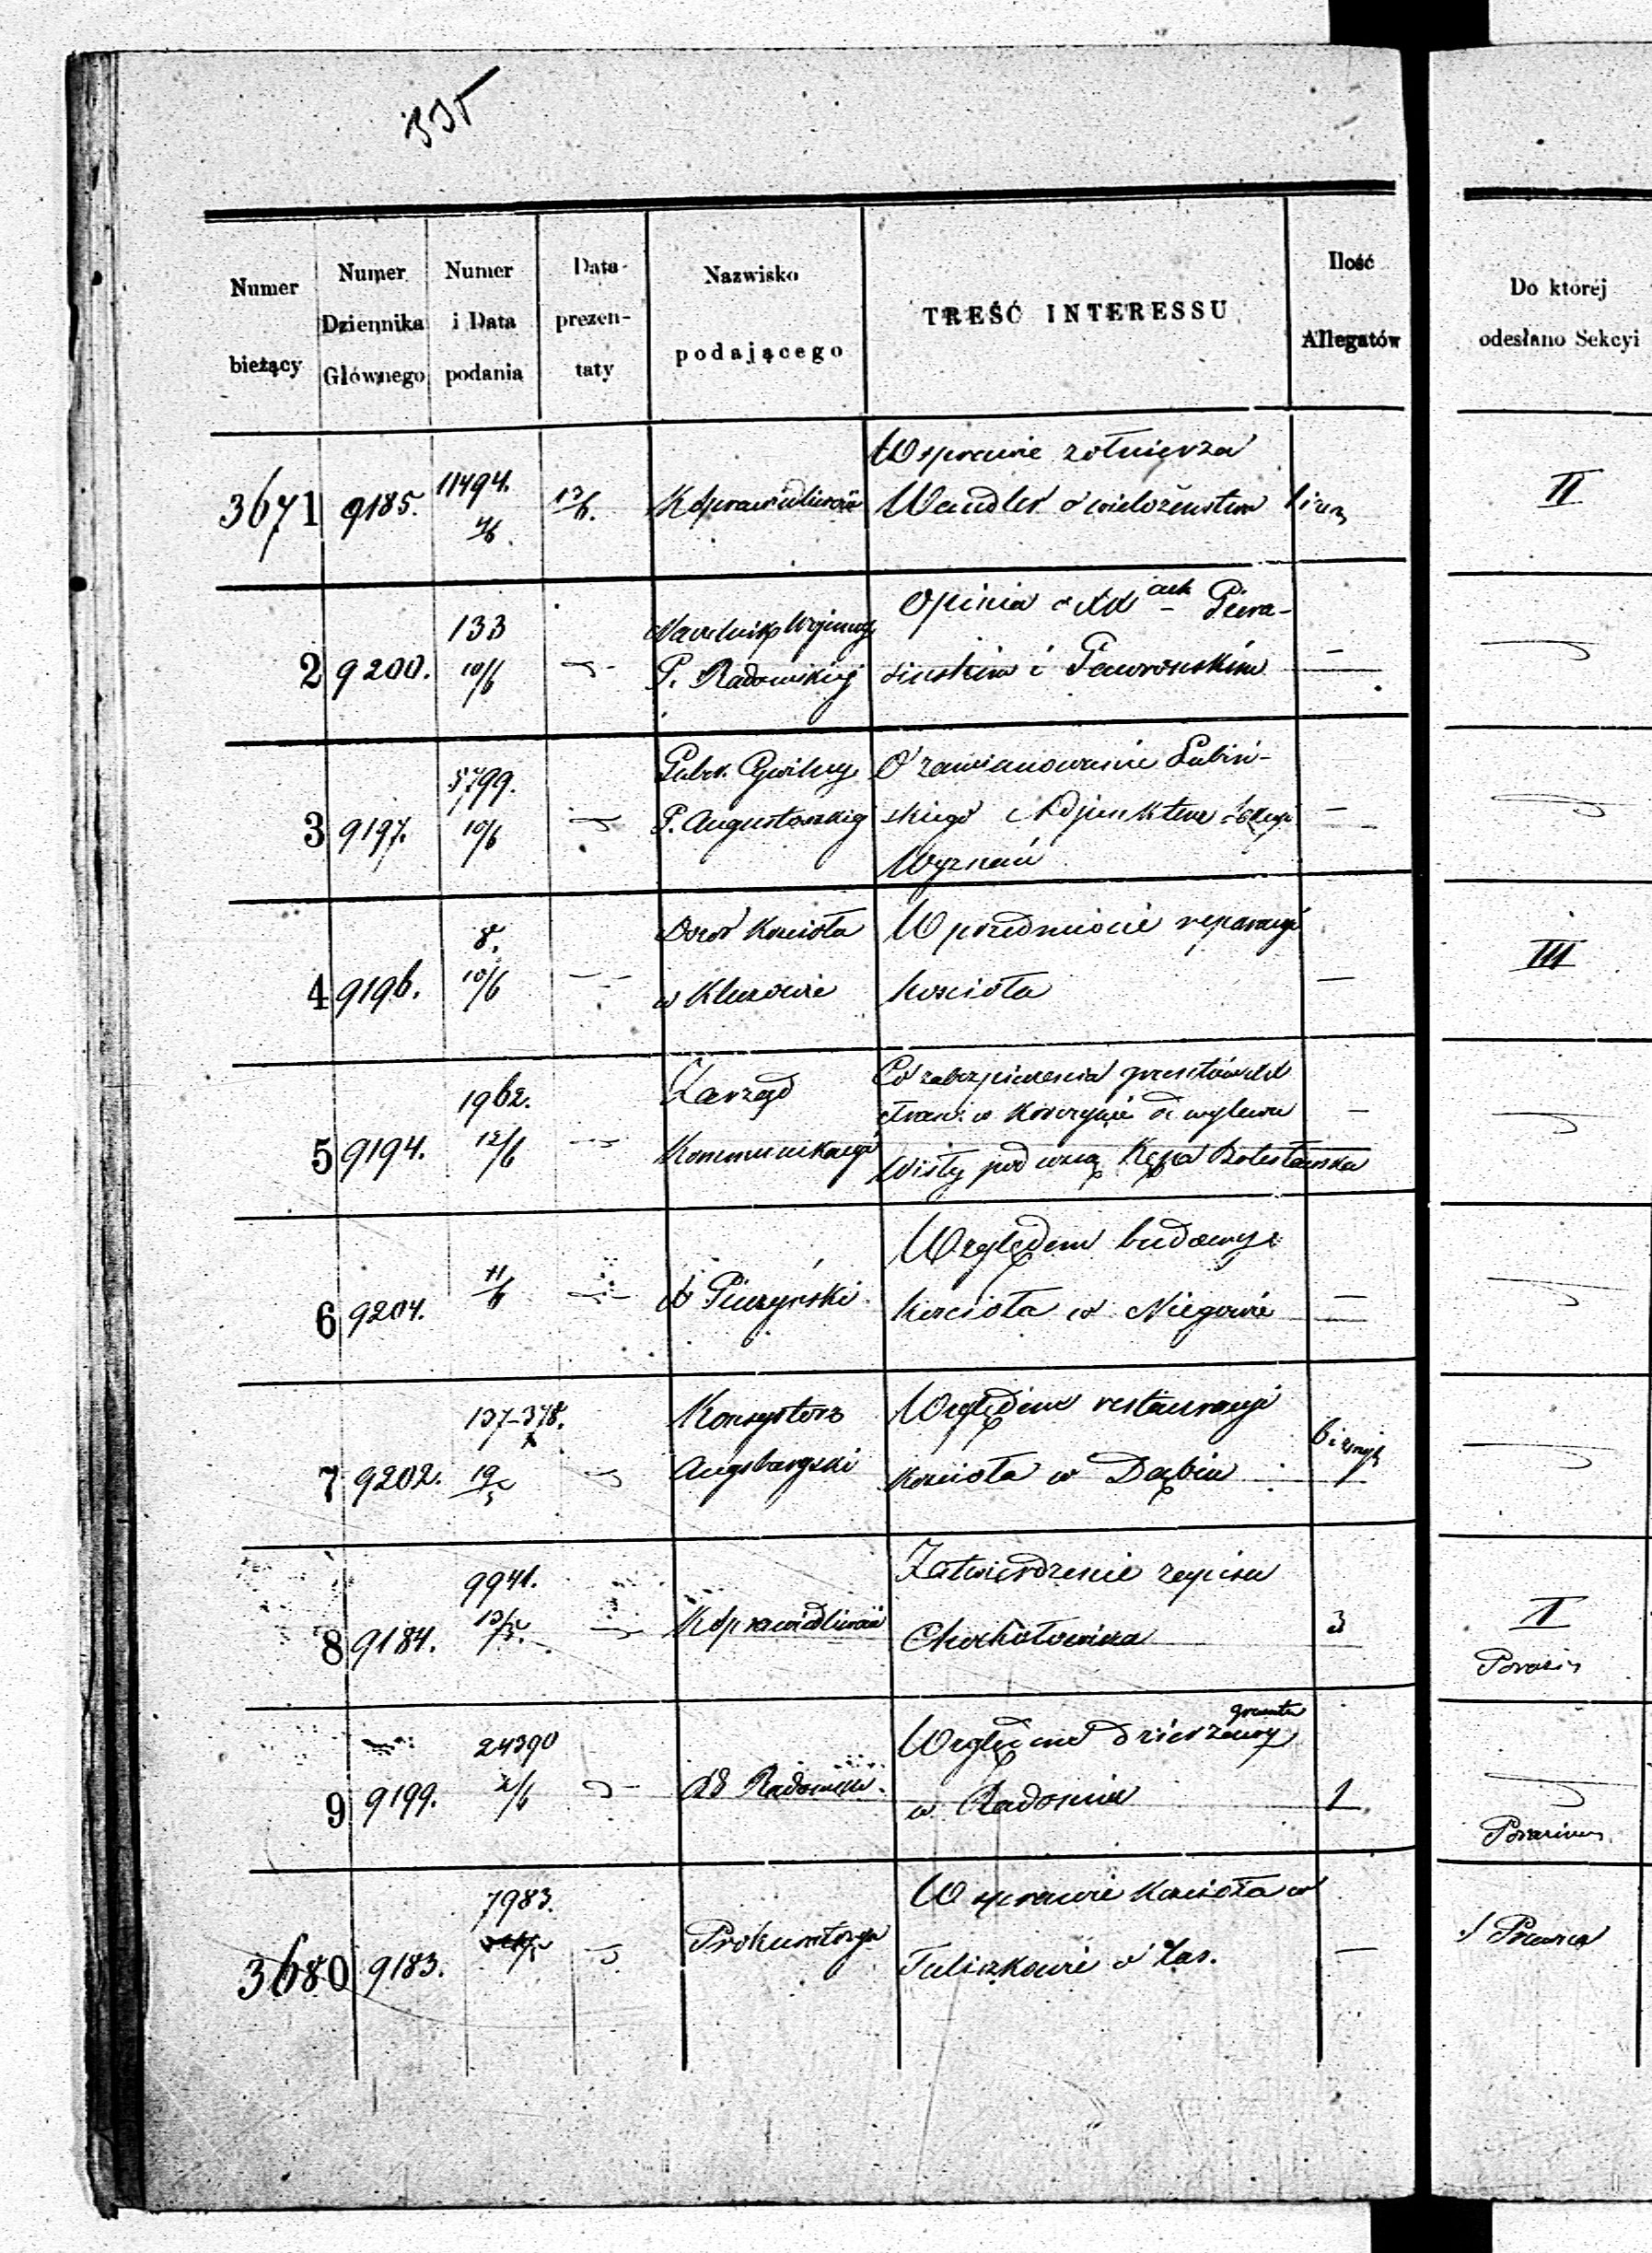 335
Numer bieżący
Numer Dziennika Głównego
Numer i Data podania
Data prezentaty
Nazwisko podającego
TREŚĆ INTERESSU
Ilość Allegatów
Do której odesłano Sekcyi
W sprawie żołnierza
3671 9185. 11494. 13/6. K Sprawiedliwości o wielożeństwo II
Opinia o XX ach
133
2 9200. 10/6 Naczelnik Wojenny
P. Radomskiej i Jaworoskim —
5799.
3 9197. 10/6 Gub. Cywilny O zamianowanie Lubiń-
P. Augustowskiej skiego Adjunktem Sekcyi —
Wyznań
8.
4 9196. 10/6 Dozór Kościoła W przedmiocie reparacyi III
w Kluzowie Kościoła —
1962.
5 9194. 12/6 Zarząd Co zabezpieczenia gruntów
Kommunikacyi w od wylewu —
Wisły pod wsią Kępa Bolesławska
6 9204. 11/6 X Względem budowy
Kościoła w Niegowie —
137-378.
7 9202. 19/5 Konsystorz Względem restauracyi
Augsburgski Kościoła w Dąbiu
9941.
8 9184. 13/5. K Sprawiedliwości Zatwierdzenie zapisu 3 II
24390
9 9199. 2/6 RG Radomski Względem dzierżawy gruntu
w Radomiu 1
7983.
3680 9183. Prokuratorya W sprawie Kościoła w
Tuliszkowie o Las. —